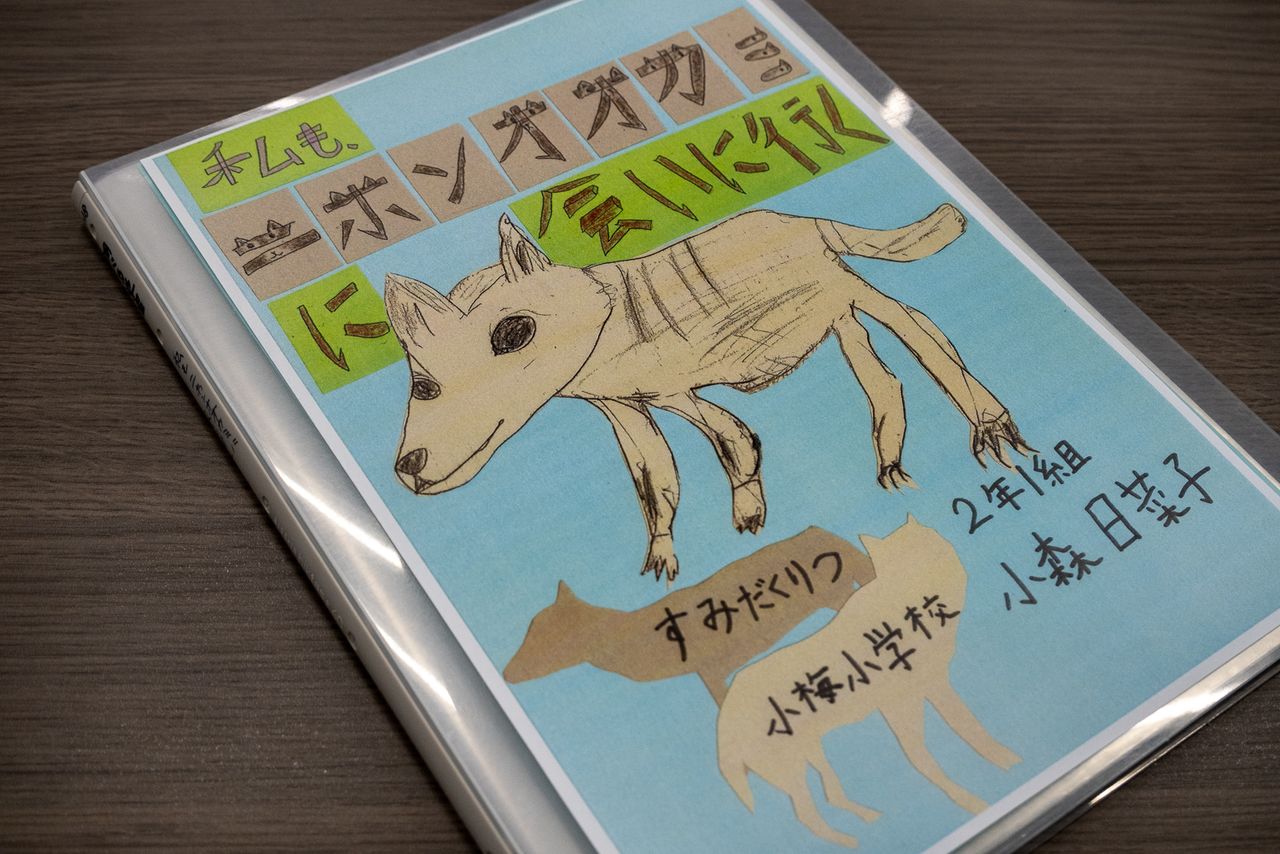 私も、
ニホンオオカミ
に会いに行く
2年1組
小森日菜子
すみだくりつ
小梅小学校